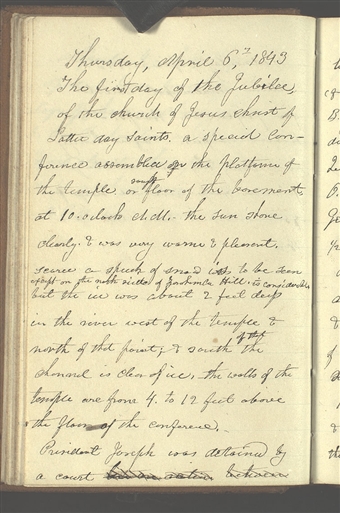 Thursday, April 6th, 1843
The first day of the Jubilee
of the church of Jesus Christ of
Latter day saints. a special con-
ference assembled on the platform of
the temple, or rough floor of the basement,
at 10. o clock A.M.. the sun shone
clearly. & was very warm & pleasant.
scarce a speck of snow is to be seen
except on the north side of Zarahemla Hill. is considerable
but the ice was about 2 feet deep
in the river west of the temple &
north of that point, & south of that the
channel is clear of ice. the walls of the
temple are from 4. to 12 feet above
the floor of the conference.
President Joseph was detained by
a court